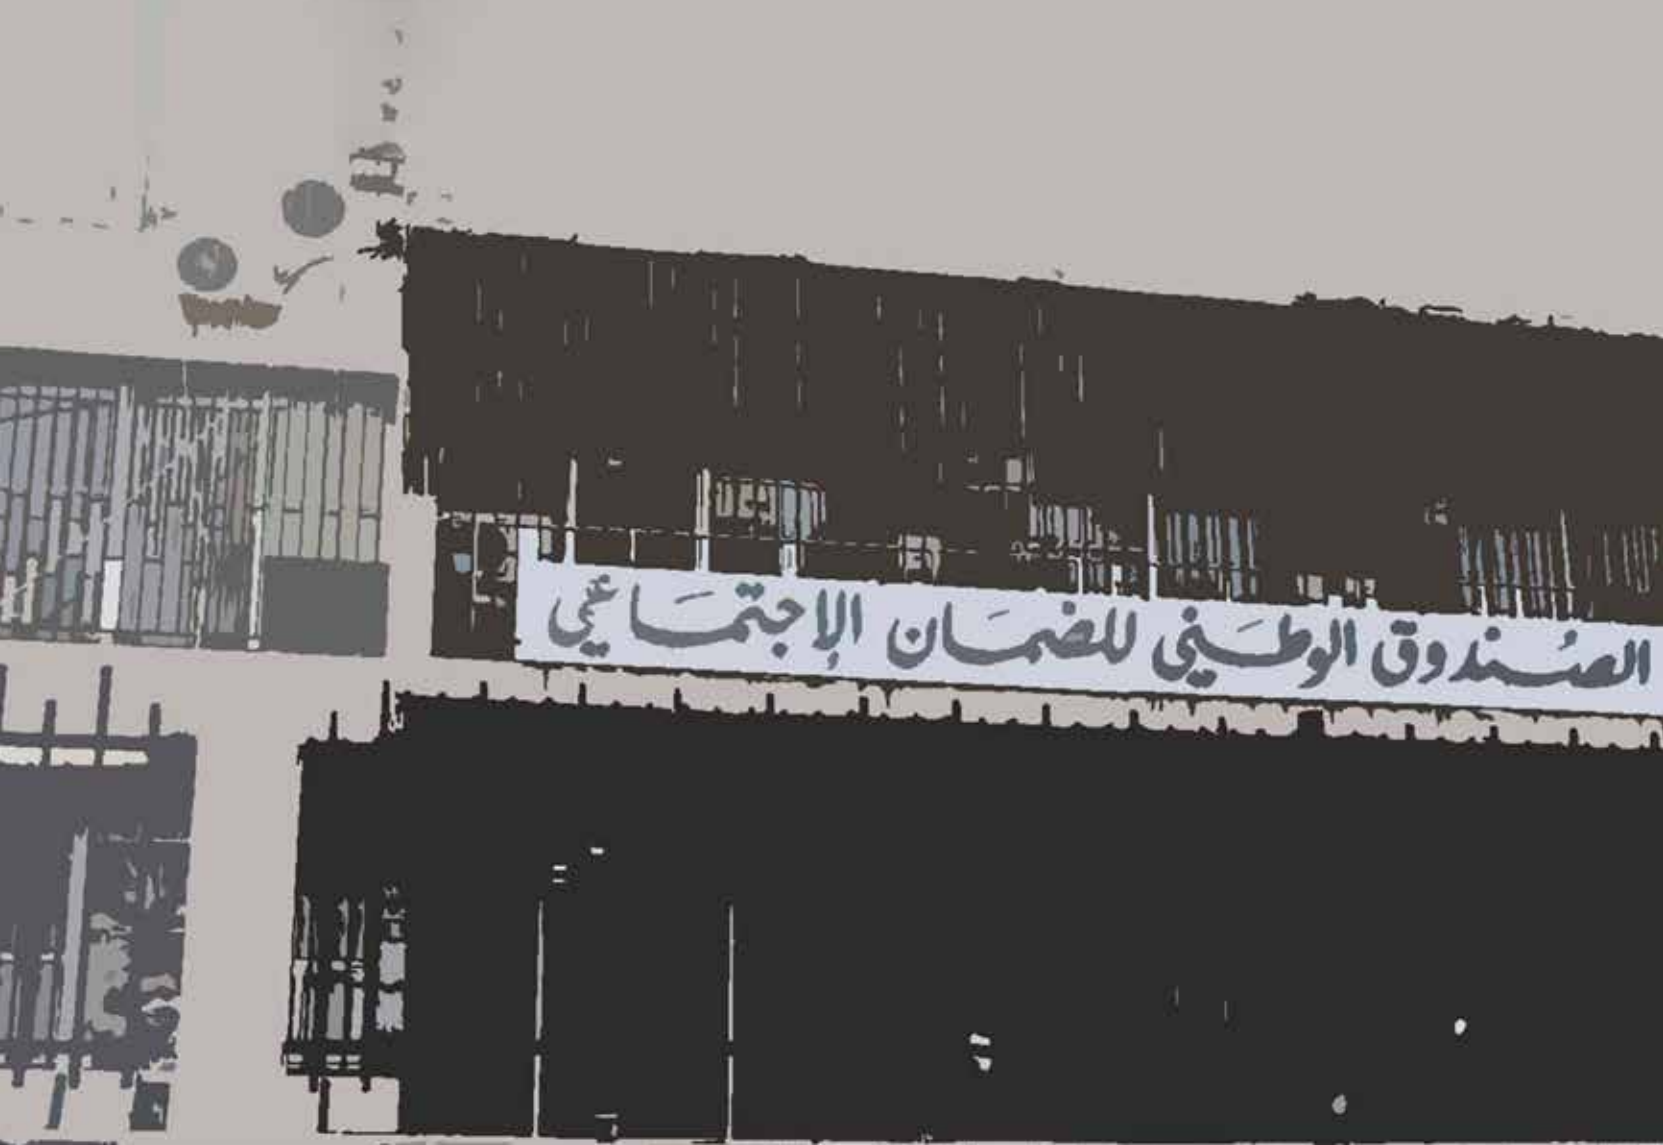 الصُندوق الوطَني للضمَان الإجتمَاعي